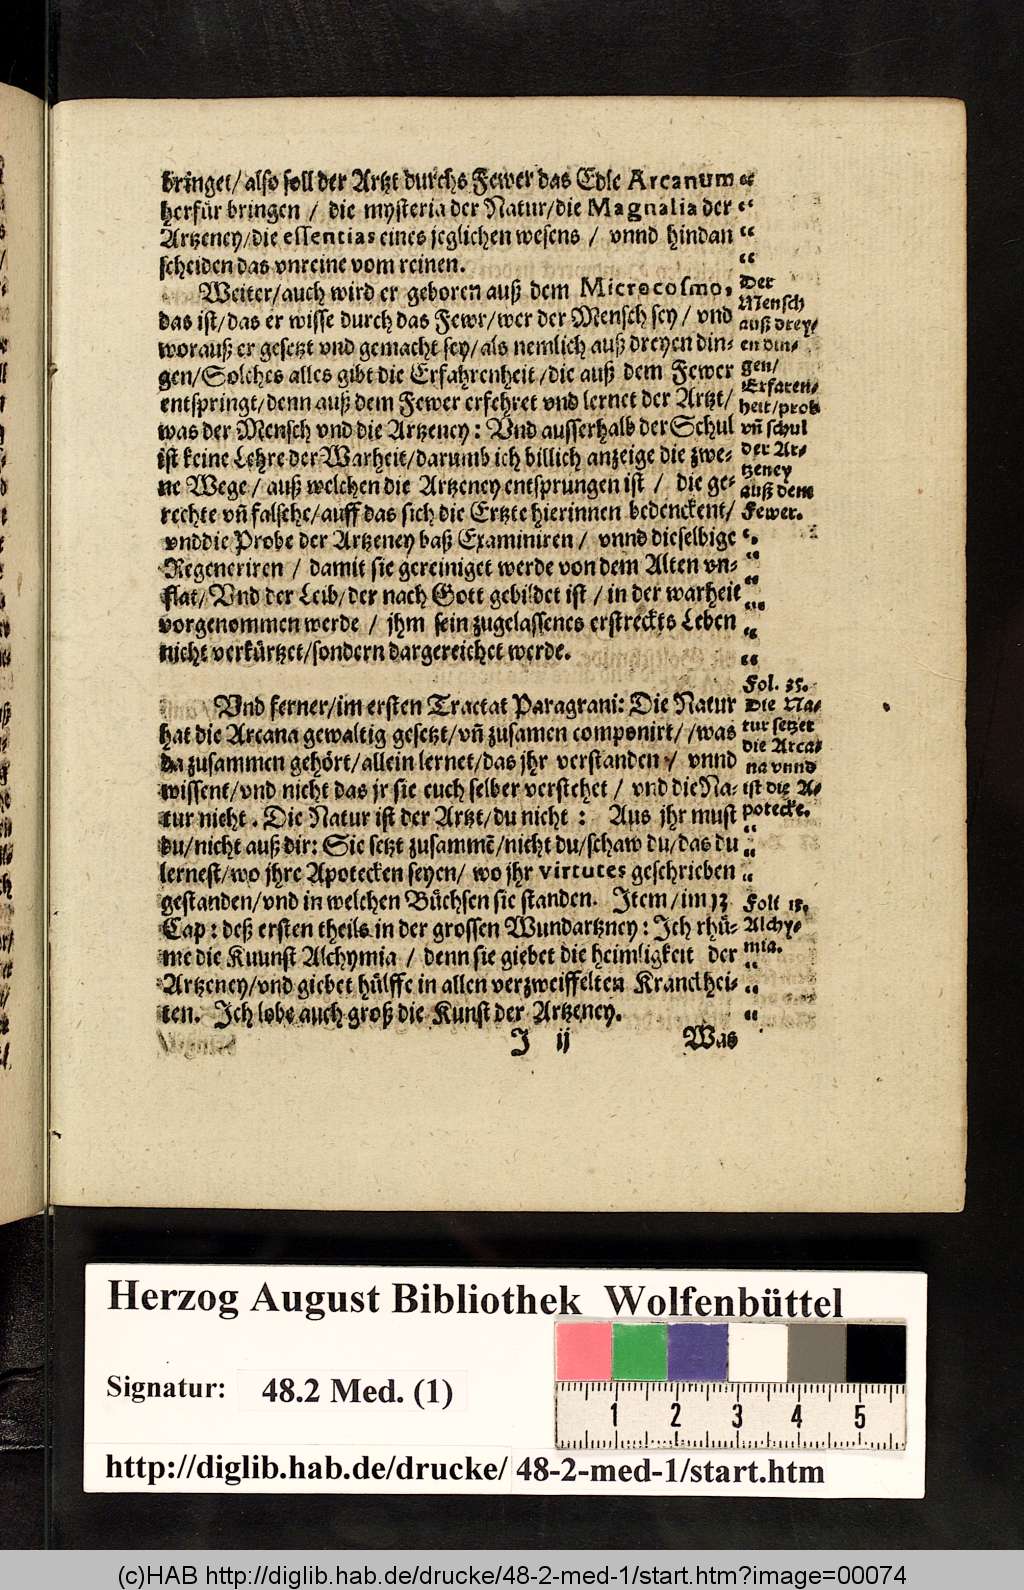 bringet/ also soll der Artzt durchs Fewer das Edle Arcanum
herfür bringen / die mysteria der Natur/die Magnalia der
Artzeney/die essentias eines jeglichen wesens / vnnd hindan
scheiden das vnreine vom reinen.
Weiter/auch wird er geboren auß dem Microcosmo,
das ist/das er wisse durch das Fewr/wer der Mensch sey / vnd
worauß er gesetzt vnd gemacht sey/als nemlich auß dreyen din⸗
gen/Solches alles gibt die Erfahrenheit /die auß dem Fewer
entspringt/denn auß dem Fewer erfehret vnd lernet der Artzt/
was der Mensch vnd die Artzeney: Vnd ausserhalb der Schul
ist keine Lehre der Warheit/darumb ich billich anzeige die zwe⸗
ne Wege / auß welchen die Artzeney entsprungen ist / die ge⸗
rechte vñ falsche/auff das sich die Ertzte hierinnen bedenckent/
vnddie Probe der Artzeney baß Examiniren / vnnd dieselbige
Regeneriren / damit sie gereiniget werde von dem Alten vn⸗
flat/ Vnd der Leib/der nach Gott gebildet ist / in der warheit
vorgenommen werde / jhm sein zugelassenes erstreckts Leben
nicht verkürtzet/sondern dargereichet werde.
Der
Mensch
auß drey⸗
en din⸗
gen/
Erfaren⸗
heit/prob
vñ schul
der Ar⸗
tzeney
auß dem
Fewer.
Vnd ferner/im ersten Tractat Paragrani: Die Natur
hat die Arcana gewaltig gesetzt/vñ zusamen componirt/ /was
da zusammen gehört/allein lernet/das jhr verstanden / vnnd
wissent/vnd nicht das jr sie euch selber verstehet / vnd die Na⸗
tur nicht. Die Natur ist der Artzt/du nicht : Aus jhr must
du/nicht auß dir: Sie setzt zusammē/nicht du/schaw du/das du
lernest/wo jhre Apotecken seyen/ wo jhr virtutes geschrieben
gestanden/vnd in welchen Büchsen sie standen. Item/im 13
Cap: deß ersten theils in der grossen Wundartzney: Ich rhü⸗
me die Kuunst Alchymia / denn sie giebet die heimligkeit der
Artzeney/vnd giebet hülffe in allen verzweiffelten Kranckhei⸗
ten. Ich lobe auch groß die Kunst der Artzeney.
Fol. 35.
Die Na⸗
tur setzet
die Arca⸗
na vnnd
ist die A⸗
potecke.
Foli 15.
Alchy⸗
mia.
J ij Was
Herzog August Bibliothek Wolfenbüttel
Signatur: 48.2 Med. (1)
1 2 3 4 5
http://diglib.hab.de/drucke/ 48-2-med-1/start.htm
(c)HAB http://diglib.hab.de/drucke/48-2-med-1/start.htm?image=00074